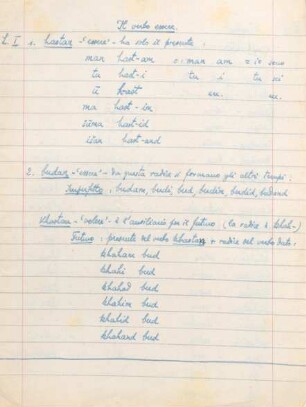 Il verbo essere.
L. I 1. hastan - "essere" - ha solo il presente:
man hast-am o: man am = io sono
tu hast-i tu i tu sei
ū hast ecc. ecc.
ma hast-im
šāma hast-id
išān hast-and
2. budan - "essere" - da questa radice si formano gli altri tempi:
Imperfetto: budam, budi, bud, budim, budid, budand
khastan - "volere" è l'ausiliario per il futuro (la radice è khah-)
Futuro: presente del verbo khastan + radice del verbo dato:
khaham bud
khahi bud
khahad bud
khahim bud
khahid bud
khahand bud